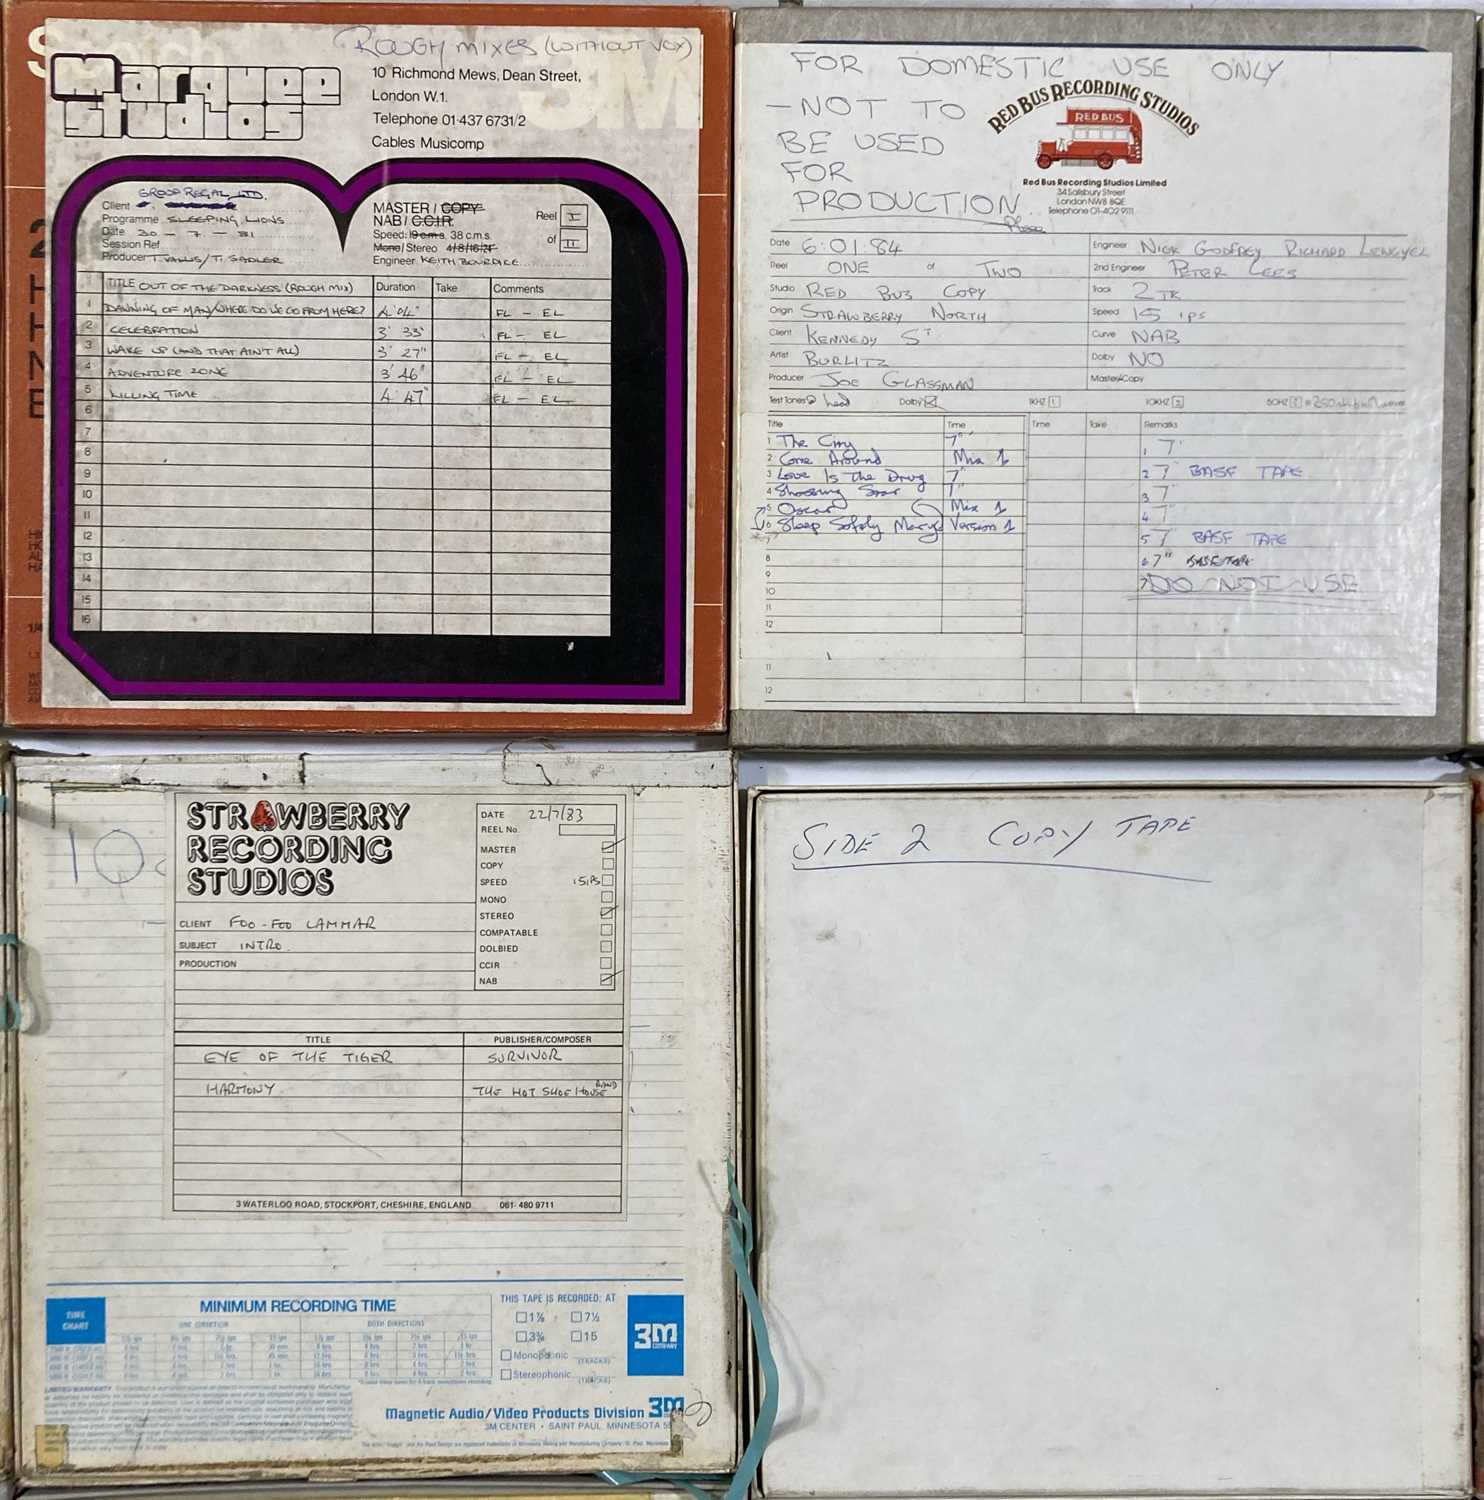 ROUGH MIXES (WITHOUT VOX)
Marquee
studios
10 Richmond Mews, Dean Street,
London W.1.
Telephone 01·437 6731/2
Cables Musicomp
3M
GROUP REGAL LTD.
Client
Programme SLEEPING LIONS
Date 30 - 7 - 81
Session Ref
Producer T. VALLIS/T. SADLER
MASTER / COPY
NAB / C.C.I.R.
Speed: 19 c.m.s. 38 c.m.s.
Mono/Stereo 4/8/16/24
Engineer KEITH BOURDICE
Reel I
of II
TITLE OUT OF THE DARKNESS (ROUGH MIX) Duration Take Comments
1 DAWNING OF MAN/WHERE DO WE GO FROM HERE? 4'04" FL - EL
2 CELEBRATION 3' 33" FL - EL
3 WAKE UP (AND THAT AIN'T ALL) 3' 27" FL - EL
4 ADVENTURE ZONE 3' 46" FL - EL
5 KILLING TIME 4' 47" FL - EL
6
7
8
9
10
11
12
13
14
15
16
FOR DOMESTIC USE ONLY
- NOT TO
BE USED
FOR
PRODUCTION
Please
RED BUS RECORDING STUDIOS
RED BUS
Red Bus Recording Studios Limited
34 Salisbury Street
London NW8 8QE
Telephone 01-402 9111
Date 6:01:84 Engineer NICK GODFREY RICHARD LENGYEL
Reel ONE of TWO 2nd Engineer PETER LEES
Studio RED BUS COPY Track 2 TK
Origin STRAWBERRY NORTH Speed 15 ips
Client KENNEDY ST Curve NAB
Artist BURLITZ Dolby NO
Producer JOE GLASSMAN Master/Copy
Test Tones @ head Dolby 1KHZ 1 10KHZ 2 50HZ 3
Title Time Time Take Remarks
1 The City 7" 1 7"
2 Come Around Mix 1 2 7" BASF TAPE
3 Love Is The Drug 7" 3 7"
4 Shooting Star 7" 4 7"
5 Oscar Mix 1 5 7" BASF TAPE
6 Sleep Safely Mary Version 1 6 7" BASF TAPE
7 7 DO NOT USE
8
9
10
11
12
11
12
STRAWBERRY
RECORDING
STUDIOS
DATE 22/7/83
REEL No.
MASTER
COPY
SPEED 15 IPS
MONO
STEREO
COMPATABLE
DOLBIED
CCIR
NAB
CLIENT FOO-FOO LAMMAR
SUBJECT INTRO.
PRODUCTION
TITLE PUBLISHER/COMPOSER
EYE OF THE TIGER SURVIVOR
HARMONY THE HOT SHOE HOUSE BAND
3 WATERLOO ROAD, STOCKPORT, CHESHIRE, ENGLAND 061- 480 9711
TIME
CHART
MINIMUM RECORDING TIME
ONE DIRECTION BOTH DIRECTIONS
THIS TAPE IS RECORDED: AT
1⅞ 7½
3¾ 15
Monophonic (TRACKS)
Stereophonic (TRACKS)
3M
COMPANY
Magnetic Audio/Video Products Division 3M
3M CENTER • SAINT PAUL, MINNESOTA
SIDE 2 COPY TAPE